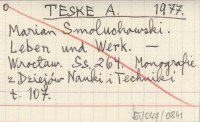 TESKE A. 1977.
Marian Smoluchowski.
Leben und Werk. —
Wrocław. Ss. 264. Monografie
z Dziejów Nauki i Techniki
t. 107.
bj/047/0841